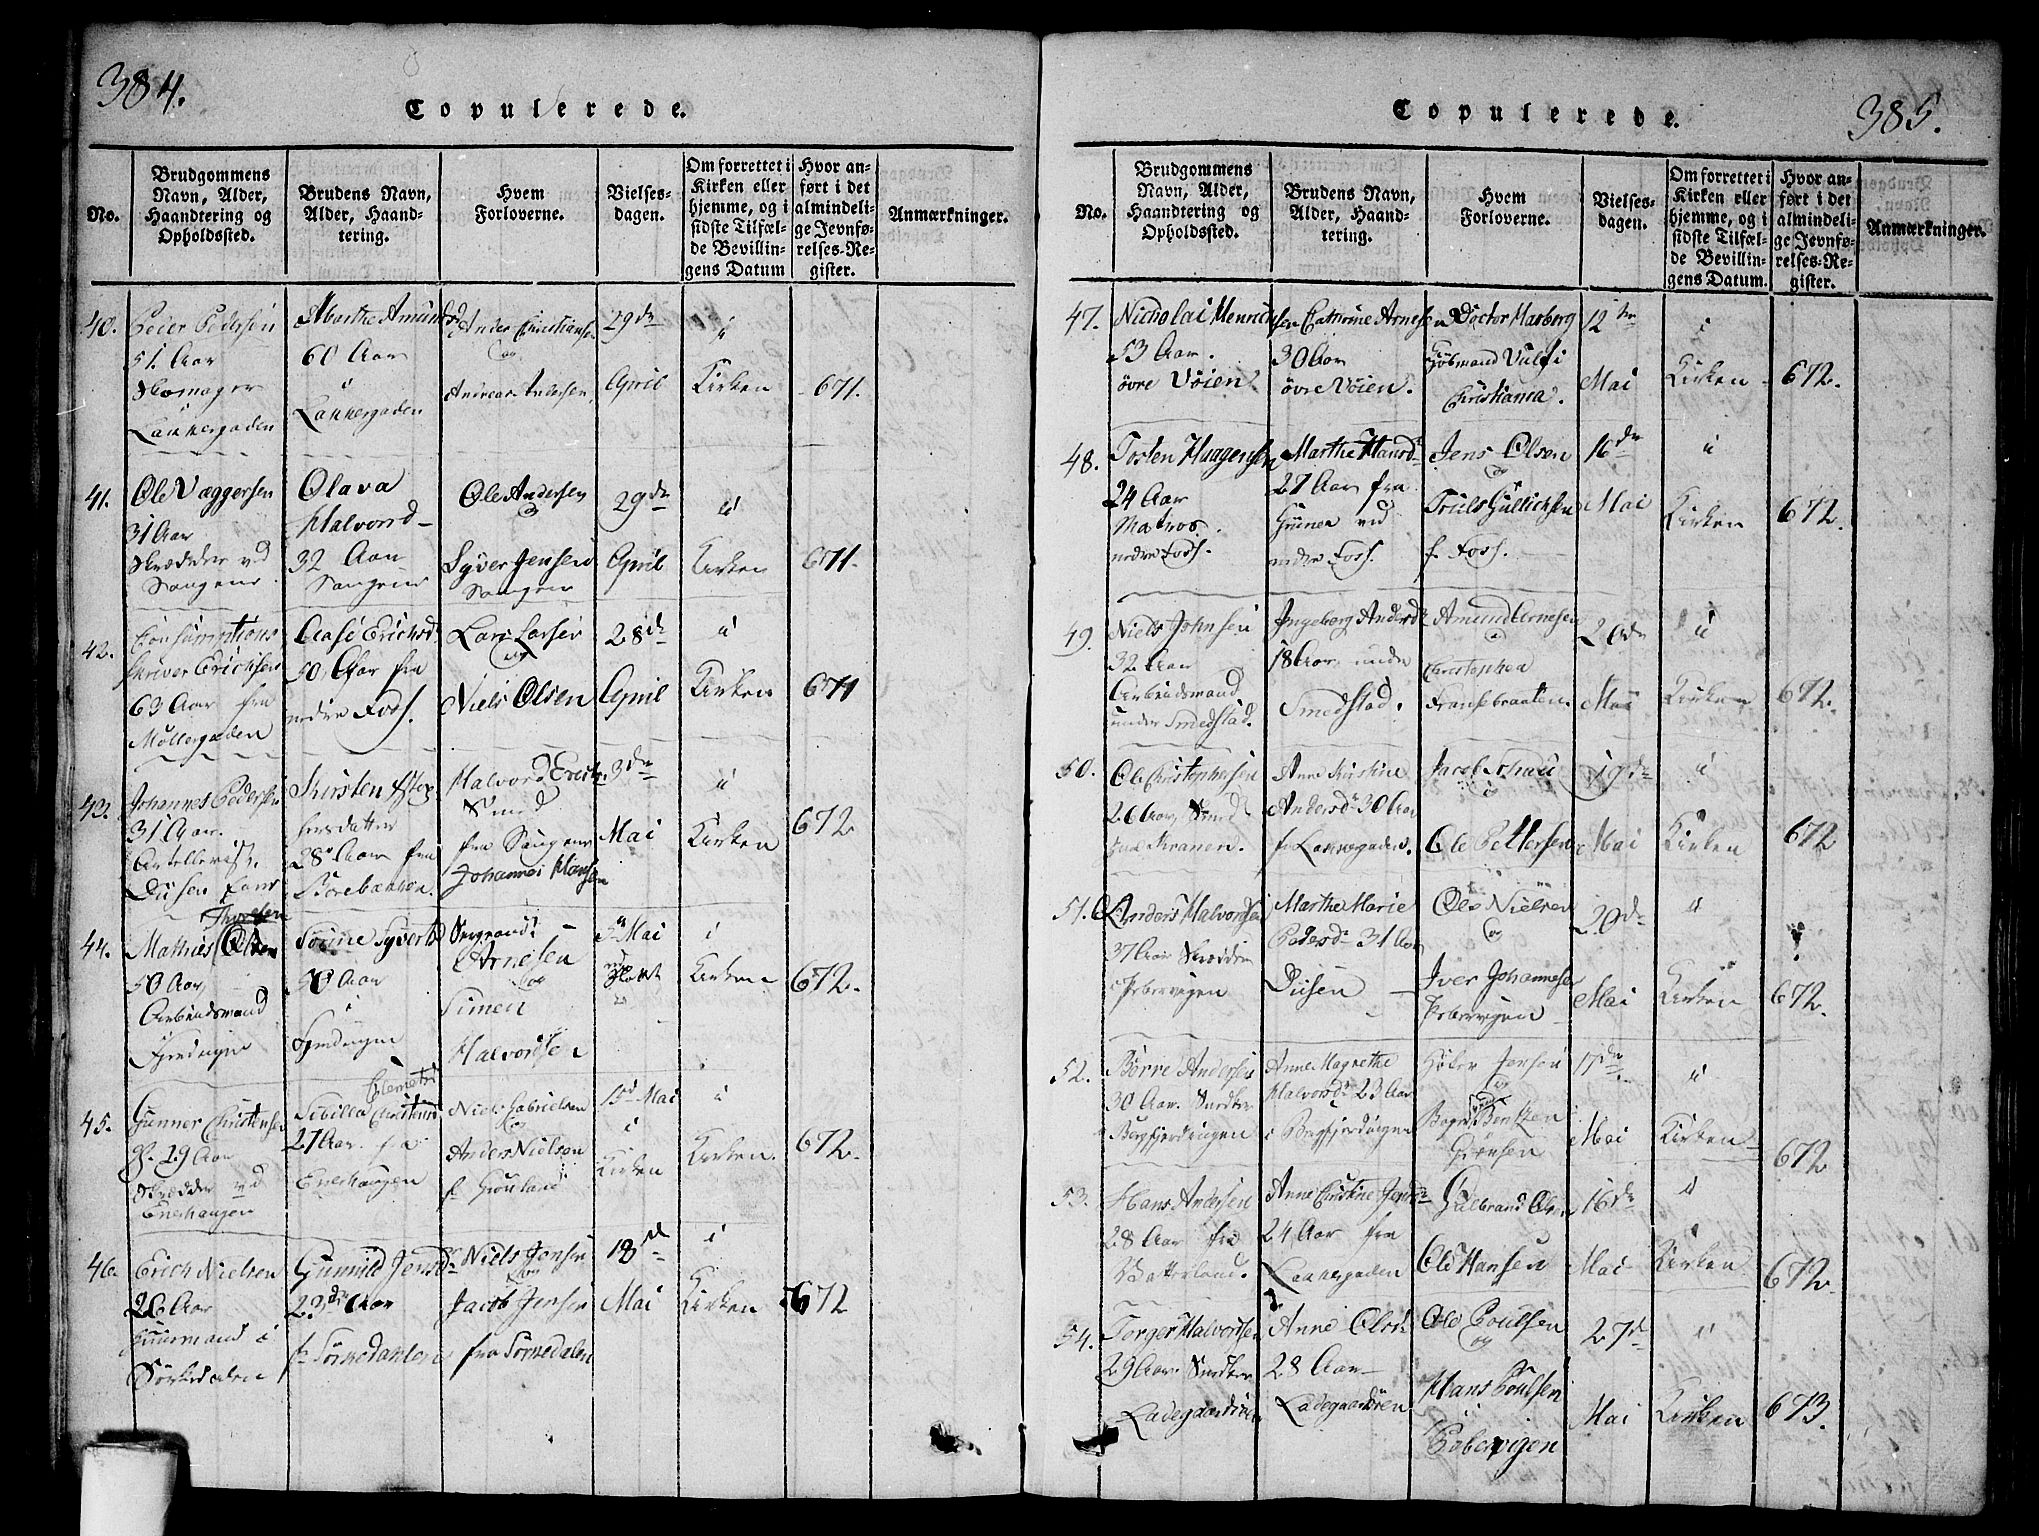 384.
Copulerede.
No.
Brudgommens
Navn, Alder,
Haandtering og
Opholdssted.
Brudens Navn,
Alder, Haand-
tering.
Hvem
Forloverne.
Vielses-
dagen.
Om forrettet i
Kirken eller
hjemme, og i
sidste Tilfæl-
de Bevillin-
gens Datum
Hvor an-
ført i det
almindeli-
ge Jevnfø-
relses-Re-
gister.
Anmærkninger.
40.
Peder Pedersen
51. Aar
Skomager
Lakkergaden
Marthe Amunds
60 Aar
i
Lakkergaden
Anders Christiansen
og
Andreas Andersen,
29de
April
i
Kirken
671.
41.
Ole Væggersen
31 Aar
Skrædder vd
Saugene
Olava
Halvorsd
32 Aar
Saugene
Ole Andersen
Syver Jensen
Saugene
29de
April
i
Kirken
671.
42.
Consumptions
skriver Erichsen
63 Aar fra
Møllergaden
Aase Erichsd
50. Aar fra
nedre Foss.
Lars Larsen
og
Niels Olsen
28de
April
i
Kirken
671
43.
Johannes Pedersen
31 Aar.
Artellerist.
Kirsten
hersdatter
28 Aar fra
Halvord Erichs.
Smed
fra Saugene
Johannes Hansen
3de
Mai
i
Kirken
672
44.
Mathias Olsen
50 Aar,
Arbeidsmand
Fjerdingen
Syverts
50 Aar
i
Fjerdingen
Arnesen
og
Simen
Halvordsen
5te Mai
i
Kirken
672.
45.
Gunner Christensen
29 Aar
Skrædder vd
Enerhaugen
Clemets
Sibilla Christensd
27 Aar. fra
Enerhaugen
Niels Gabrielsen
og
Anders Nielsen
f. Grønland
15d Mai
i
Kirken
i
Kirken.
672.
46.
Erich Nielsen
26 Aar
Huusmand i
Sørkedalen
Gunnild Jensd
23de Aar
f. Sørkedalen
Niels Jensen
og
Jacob Jensen
fra Sørkedalen
18de
Mai
i
Kirken
672
385.
Copulerede.
No.
Brudgommens
Navn, Alder,
Haandtering og
Opholdssted.
Brudens Navn,
Alder, Haand-
tering.
Hvem
Forloverne.
Vielses-
dagen.
Om forrettet i
Kirken eller
hjemme, og i
sidste Tilfæl-
de Bevillin-
gens Datum.
Hvor an-
ført i det
almindeli-
ge Jevnfø-
relses-Re-
gister.
Anmærkninger.
47.
Nickolai Henrichsen
53 Aar.
øvre Vöien.
Cathrine Arnesen
30 Aar
øvre Vöien.
Doctor Maxberg
Kjøbmand Vulf i
Christiania.
12te
Mai
i
Kirken
672.
48.
Tosten Haggensen
24 Aar
Matros.
nedre Foss.
Marthe Hansd
27 Aar fra
Grünen vid
nedre Foss.
Jens Olsen
og
Truls Gullichsen
f. Foss.
16de
Mai
i
Kirken
672.
49.
Niels Johnsen
32 Aar
Arbeidsmand
under Smedstad.
Ingeborg Andersd
18 Aar, under
Smedstad.
Amund Arnesen
Christopher
Fransebraaten.
26de
Mai
i
Kirken
672.
50.
Ole Christophersen
26 Aar, Smed
Anne Kirstine
Andersd 30 Aar
f. Lakkegaden.
Jacob Schau
Ole Pettersen
19de
Mai
i
Kirken
672
51.
Anders Halvordsen
37 Aar Skrædder
i Pebervigen
Marthe Marie
Pedersd 31 Aar
Ole Nielsen
og
Iver Johannesen
Pebervigen
20de
Mai
i
Kirken
672.
52.
Börre Andersen
30 Aar. Snedker
Bergfjerdingen
Anne Magrethe
Halvorsd 23 Aar
i Bergfjerdingen
Jensen
og
Bentzen
Grönsen
17de
Mai
i
Kirken
672
53.
Hans Andersen
28 Aar fra
Vatterland.
Anne Christine Jensd
24 Aar fra
Lakkergaden
Gulbrand Olsen
Ole Hansen
16de
Mai
i
Kirken
672.
54.
Torger Halvordsen
29 Aar. Snedker
Ladegaardsöen
Anne Olsd
28 Aar
Ladegaardsöen
Ole Poulsen
og
Hans Poulsen
i
Pebervigen
27d
Mai
i
Kirken
673.